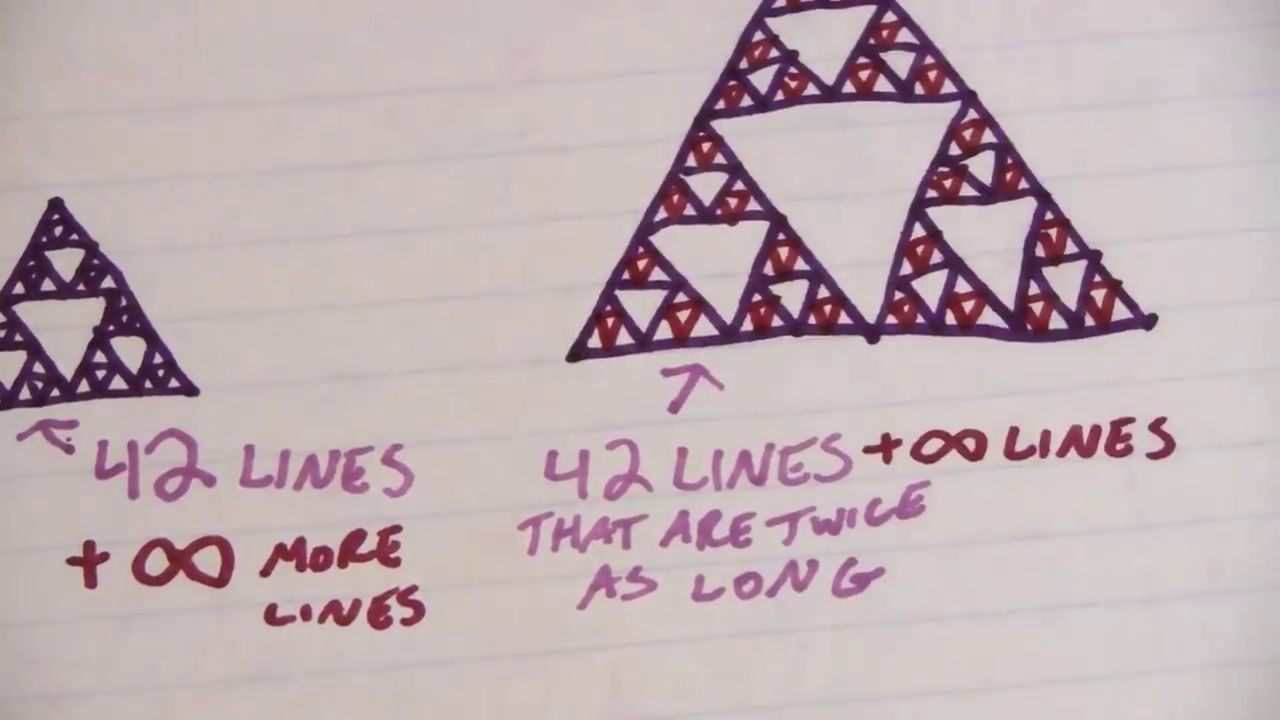 42 LINES
+ ∞ MORE
LINES
42 LINES + ∞ LINES
THAT ARE TWICE
AS LONG